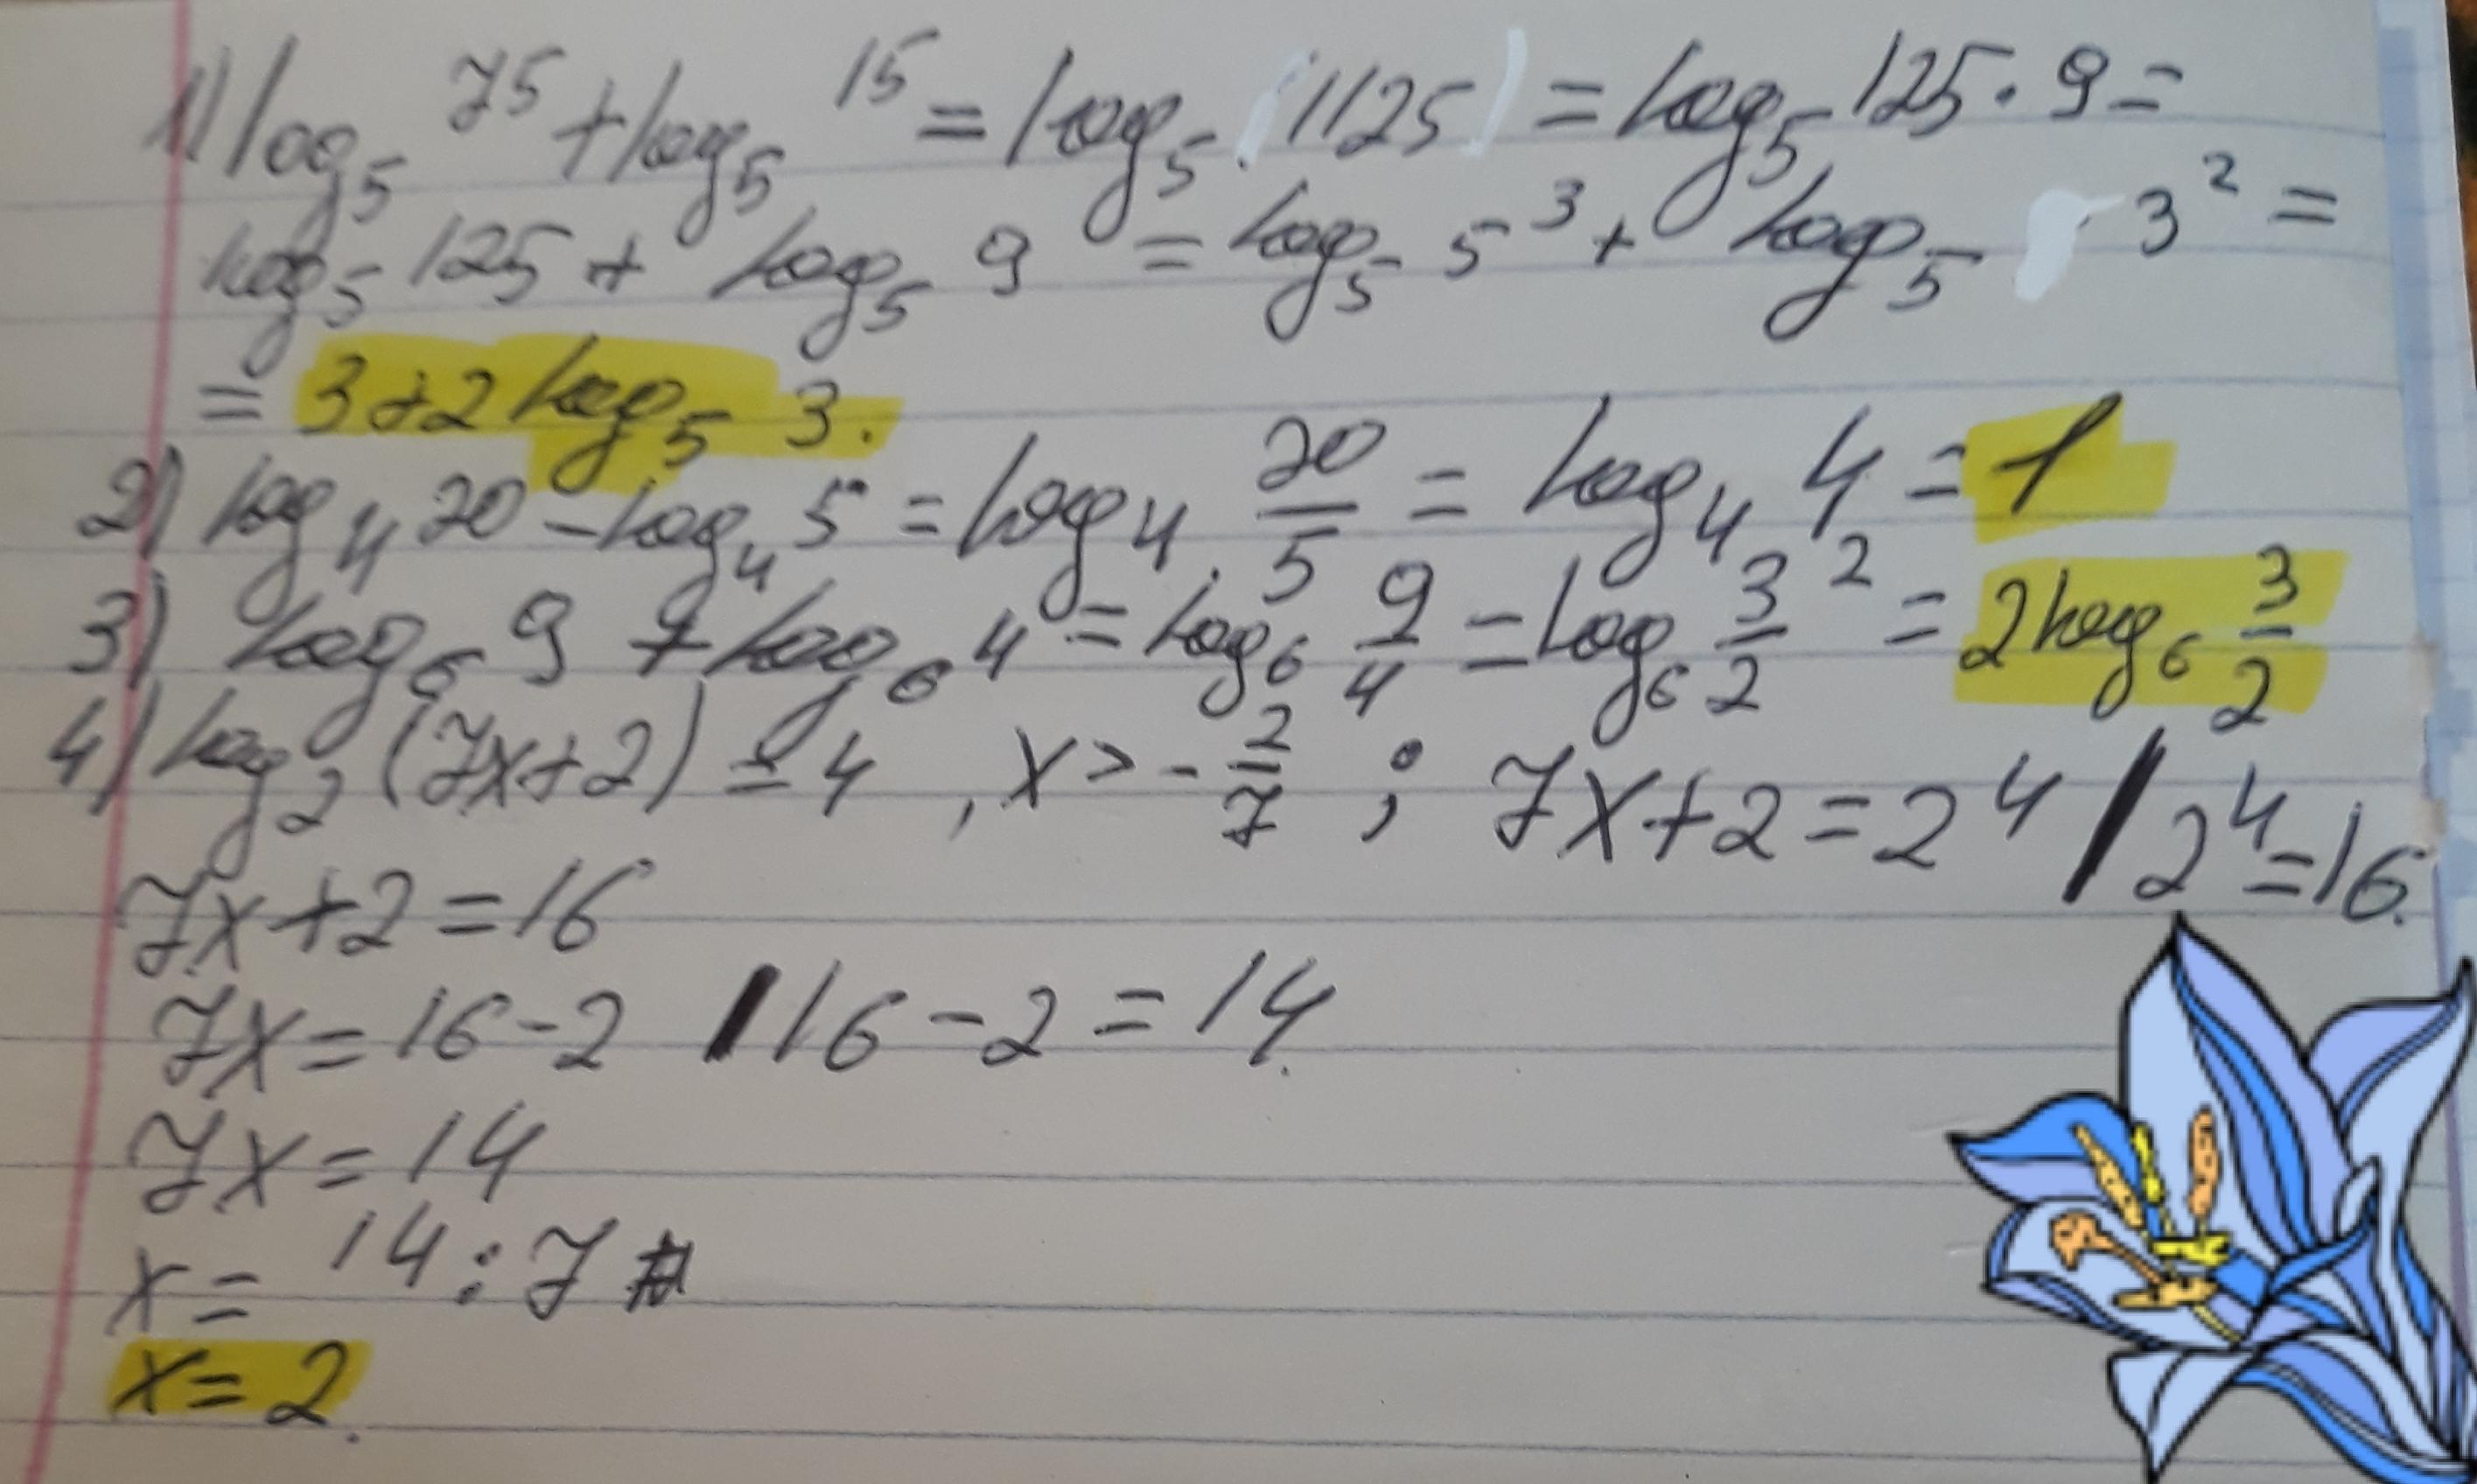 1) log₅ 75 + log₅ 15 = log₅ (1125) = log₅ 125 · 9 =
log₅ 125 + log₅ 9 = log₅ 5³ + log₅ 3² =
= 3 + 2 log₅ 3.
2) log₄ 20 - log₄ 5 = log₄ 20/5 = log₄ 4 = 1
3) log₆ 9 + log₆ 4 = log₆ 9/4 = log₆ 3/2 ² = 2 log₆ 3/2
4) log₂ (7x+2) = 4 , x > - 2/7 ; 7x+2 = 2⁴ / 2⁴ = 16.
7x + 2 = 16
7x = 16 - 2 / 16 - 2 = 14.
7x = 14
x = 14 : 7
x = 2.